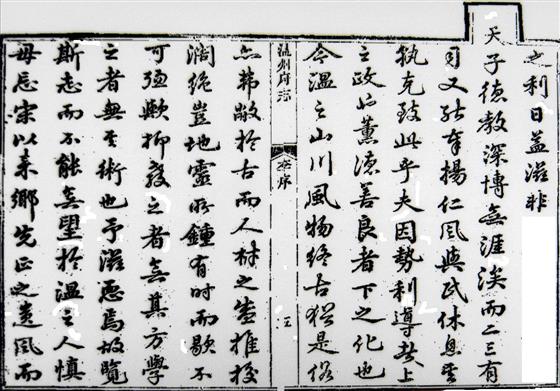 之利日益滋非
天子德教深博無涯涘而二三有
司又能奉揚仁風與民休息
孰克致此乎夫因勢利導者上
之政也薰德善良者下之化也
今温之山川風物終古猶是俗
温州府志
序
五
亦弗敝於古而人材之盛推挍
濶絶豈地靈所鍾有時而歇不
可强歟抑發之者無其方學
之者無其術也予滋惑焉故覽
斯志而不能無望於温之人慎
毋忘宋以來鄉先正之遺風而